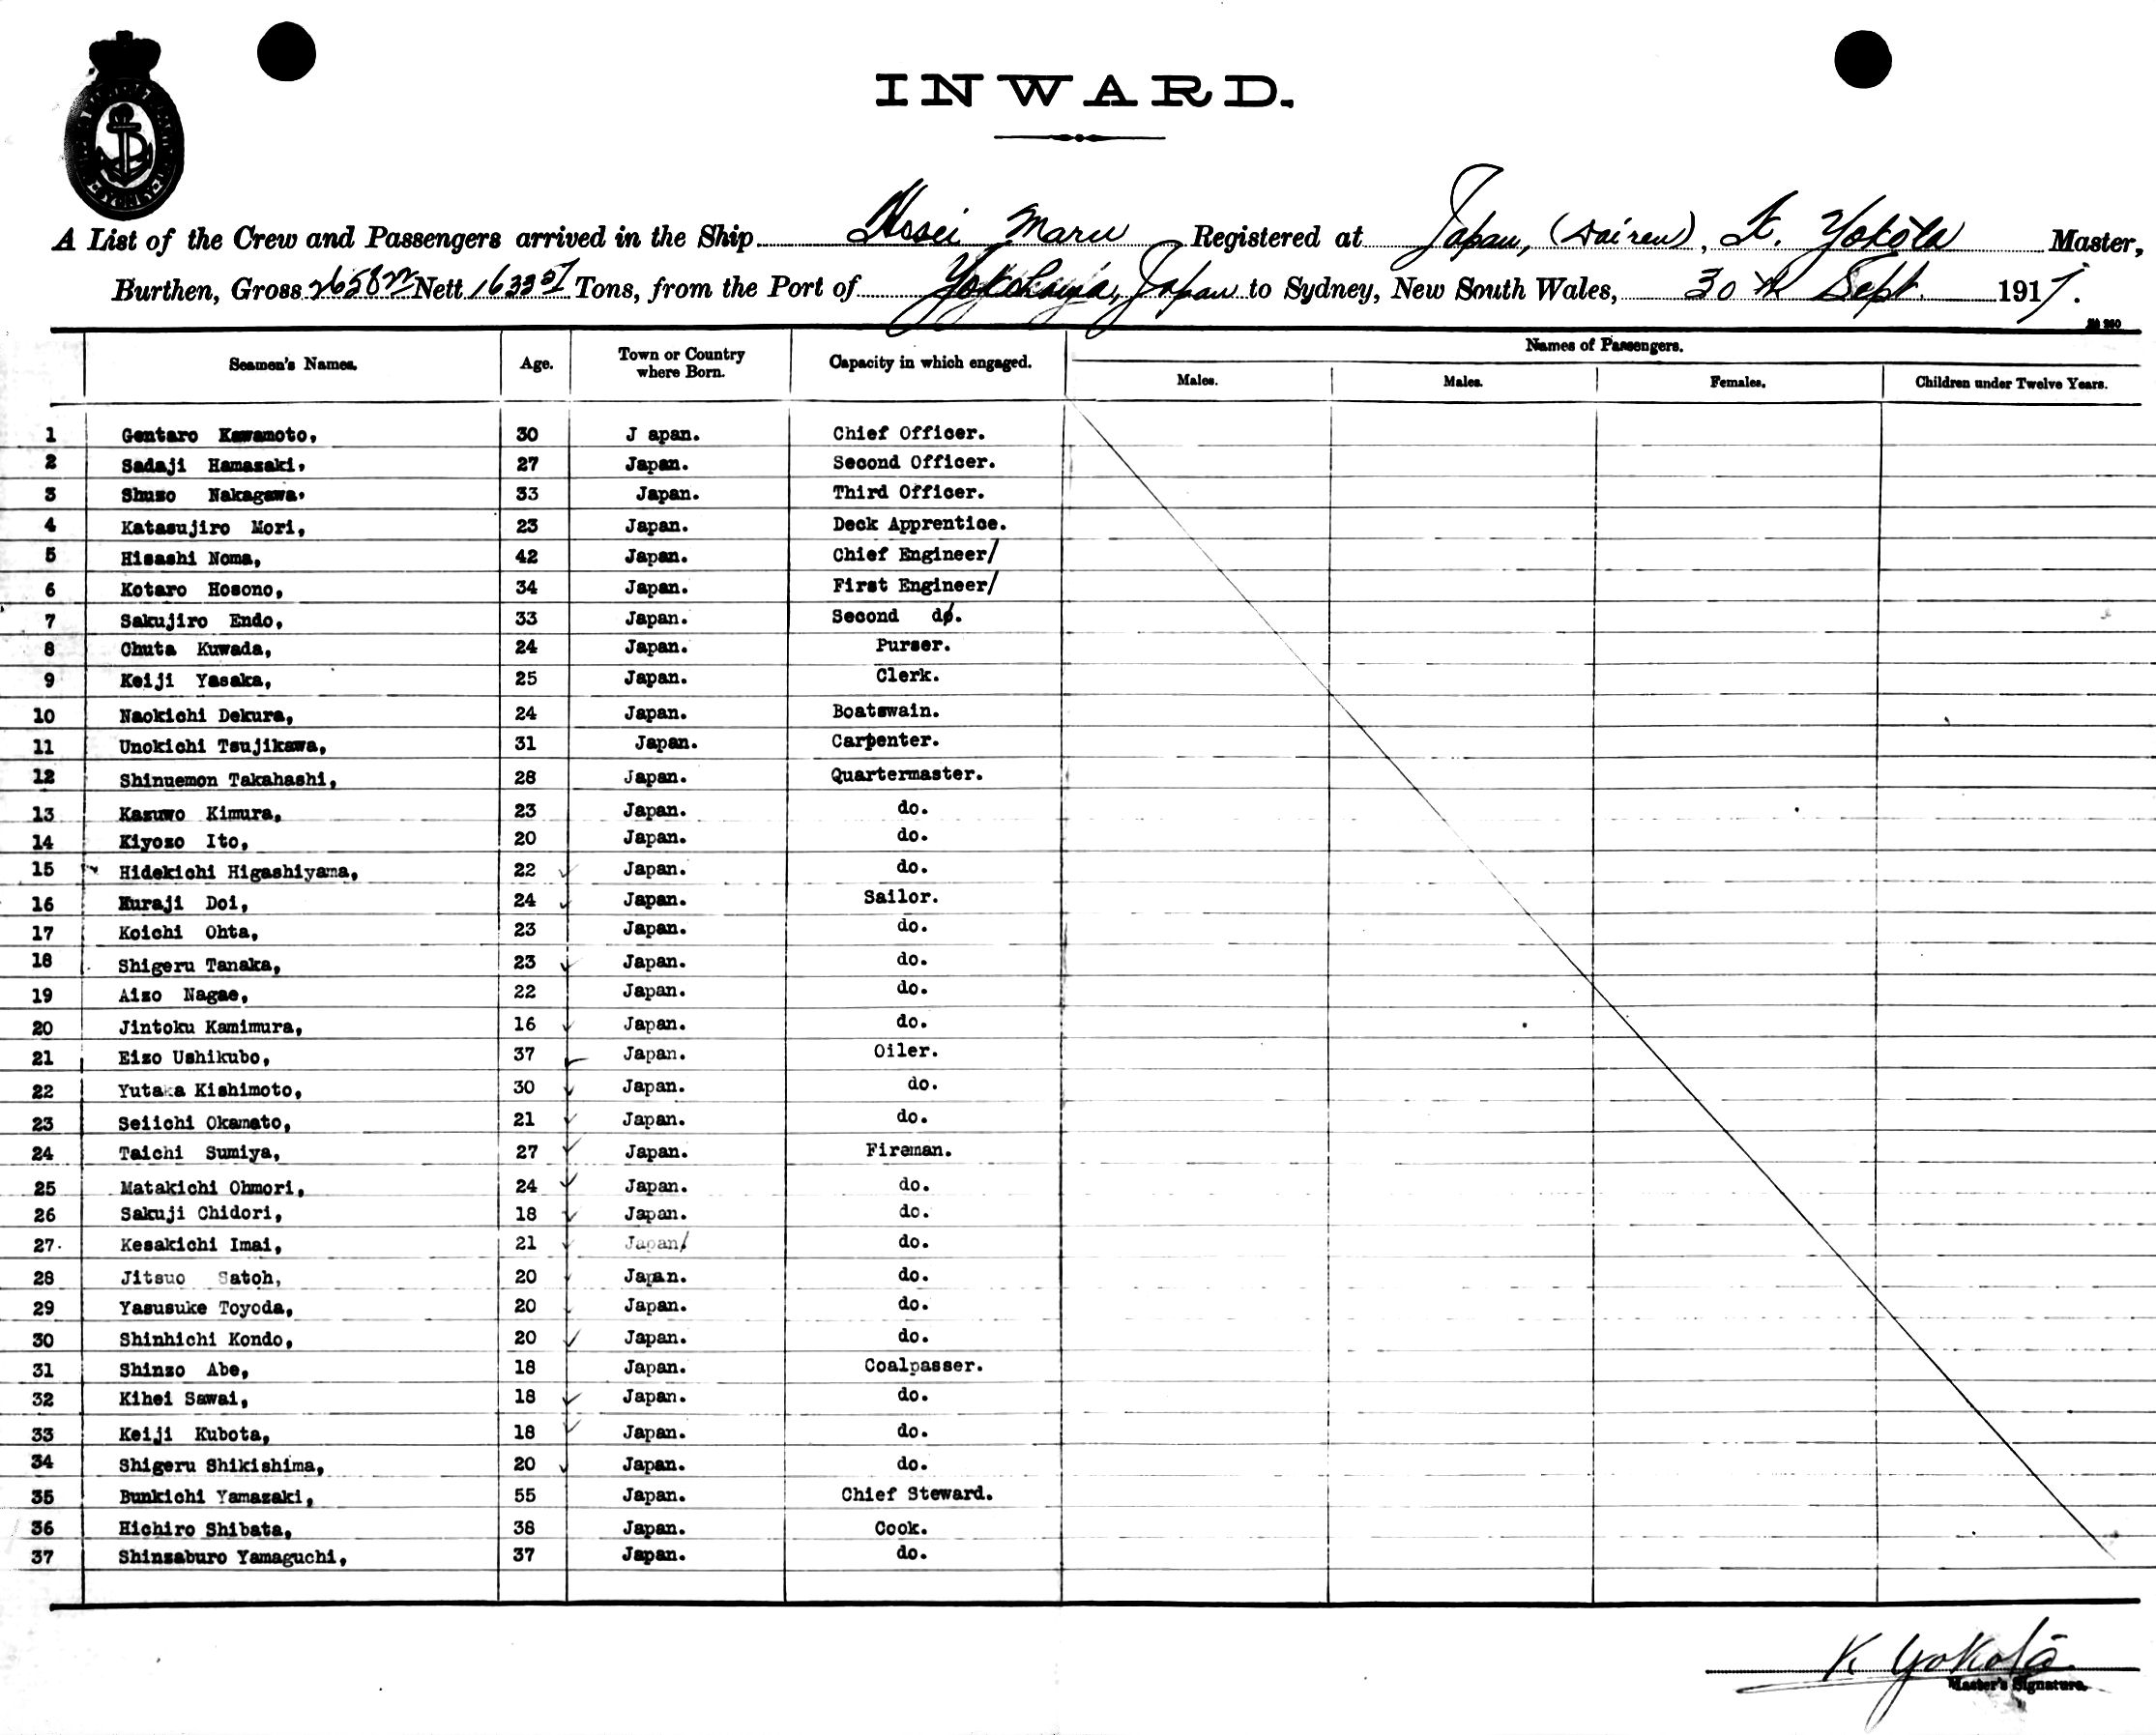 INWARD.
A List of the Crew and Passengers arrived in the Ship Hosei Maru Registered at Japan, (Dairen), K. Yokota Master,
Burthen, Gross 2658 Nett 1633 Tons, from the Port of Yokohama, Japan to Sydney, New South Wales, 30th Sept. 1917.
Names of Passengers.
Seamen's Names. Age. Town or Country where Born. Capacity in which engaged. Males. Males. Females. Children under Twelve Years.
1 Gentaro Kawamoto, 30 J apan. Chief Officer.
2 Sadaji Hamazaki, 27 Japan. Second Officer.
3 Shuzo Nakagawa, 33 Japan. Third Officer.
4 Katasujiro Mori, 23 Japan. Deck Apprentice.
5 Hisashi Noma, 42 Japan. Chief Engineer/
6 Kotaro Hosono, 34 Japan. First Engineer/
7 Sakujiro Endo, 33 Japan. Second do.
8 Chuta Kuwada, 24 Japan. Purser.
9 Keiji Yasaka, 25 Japan. Clerk.
10 Naokichi Dekura, 24 Japan. Boatswain.
11 Unokichi Tsujikawa, 31 Japan. Carpenter.
12 Shinuemon Takahashi, 28 Japan. Quartermaster.
13 Kazuwo Kimura, 23 Japan. do.
14 Kiyozo Ito, 20 Japan. do.
15 Hidekichi Higashiyama, 22 Japan. do.
16 Kuraji Doi, 24 Japan. Sailor.
17 Koichi Ohta, 23 Japan. do.
18 Shigeru Tanaka, 23 Japan. do.
19 Aizo Nagae, 22 Japan. do.
20 Jintoku Kamimura, 16 Japan. do.
21 Eizo Ushikubo, 37 Japan. Oiler.
22 Yutaka Kishimoto, 30 Japan. do.
23 Seiichi Okamoto, 21 Japan. do.
24 Taichi Sumiya, 27 Japan. Fireman.
25 Matakichi Ohmori, 24 Japan. do.
26 Sakuji Chidori, 18 Japan. do.
27. Kesakichi Imai, 21 Japan/ do.
28 Jitsuo Satoh, 20 Japan. do.
29 Yasusuke Toyoda, 20 Japan. do.
30 Shinhichi Kondo, 20 Japan. do.
31 Shinzo Abe, 18 Japan. Coalpasser.
32 Kihei Sawai, 18 Japan. do.
33 Keiji Kubota, 18 Japan. do.
34 Shigeru Shikishima, 20 Japan. do.
35 Bunkichi Yamazaki, 55 Japan. Chief Steward.
36 Hichiro Shibata, 38 Japan. Cook.
37 Shinzaburo Yamaguchi, 37 Japan. do.
K Yokota
Master's Signature.